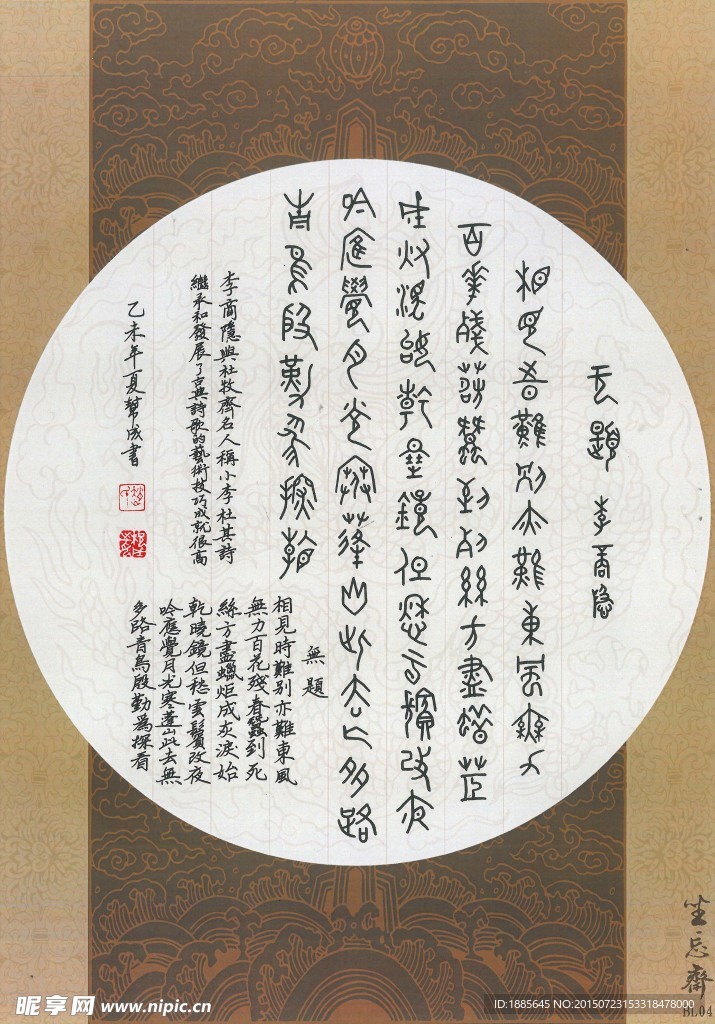 无題 李商隐
相見時難別亦難東風無力
百華殘春蠶到死絲方盡蠟炬
成灰淚始乾曉鏡但愁雲鬢改夜
吟應覺月光寒蓬山此去無多路
青鳥殷勤為探看
李商隱與杜牧齊名人稱小李杜其詩
繼承和發展了古典詩歌的藝術技巧成就很高
乙未年夏幫成書
無題
相見時難別亦難東風
無力百花殘春蠶到死
絲方盡蠟炬成灰淚始
乾曉鏡但愁雲鬢改夜
吟應覺月光寒蓬山此去無
多路青鳥殷勤為探看
坐忘齋
BL04
昵享网 www.nipic.cn
ID:1885645 NO:20150723153318478000